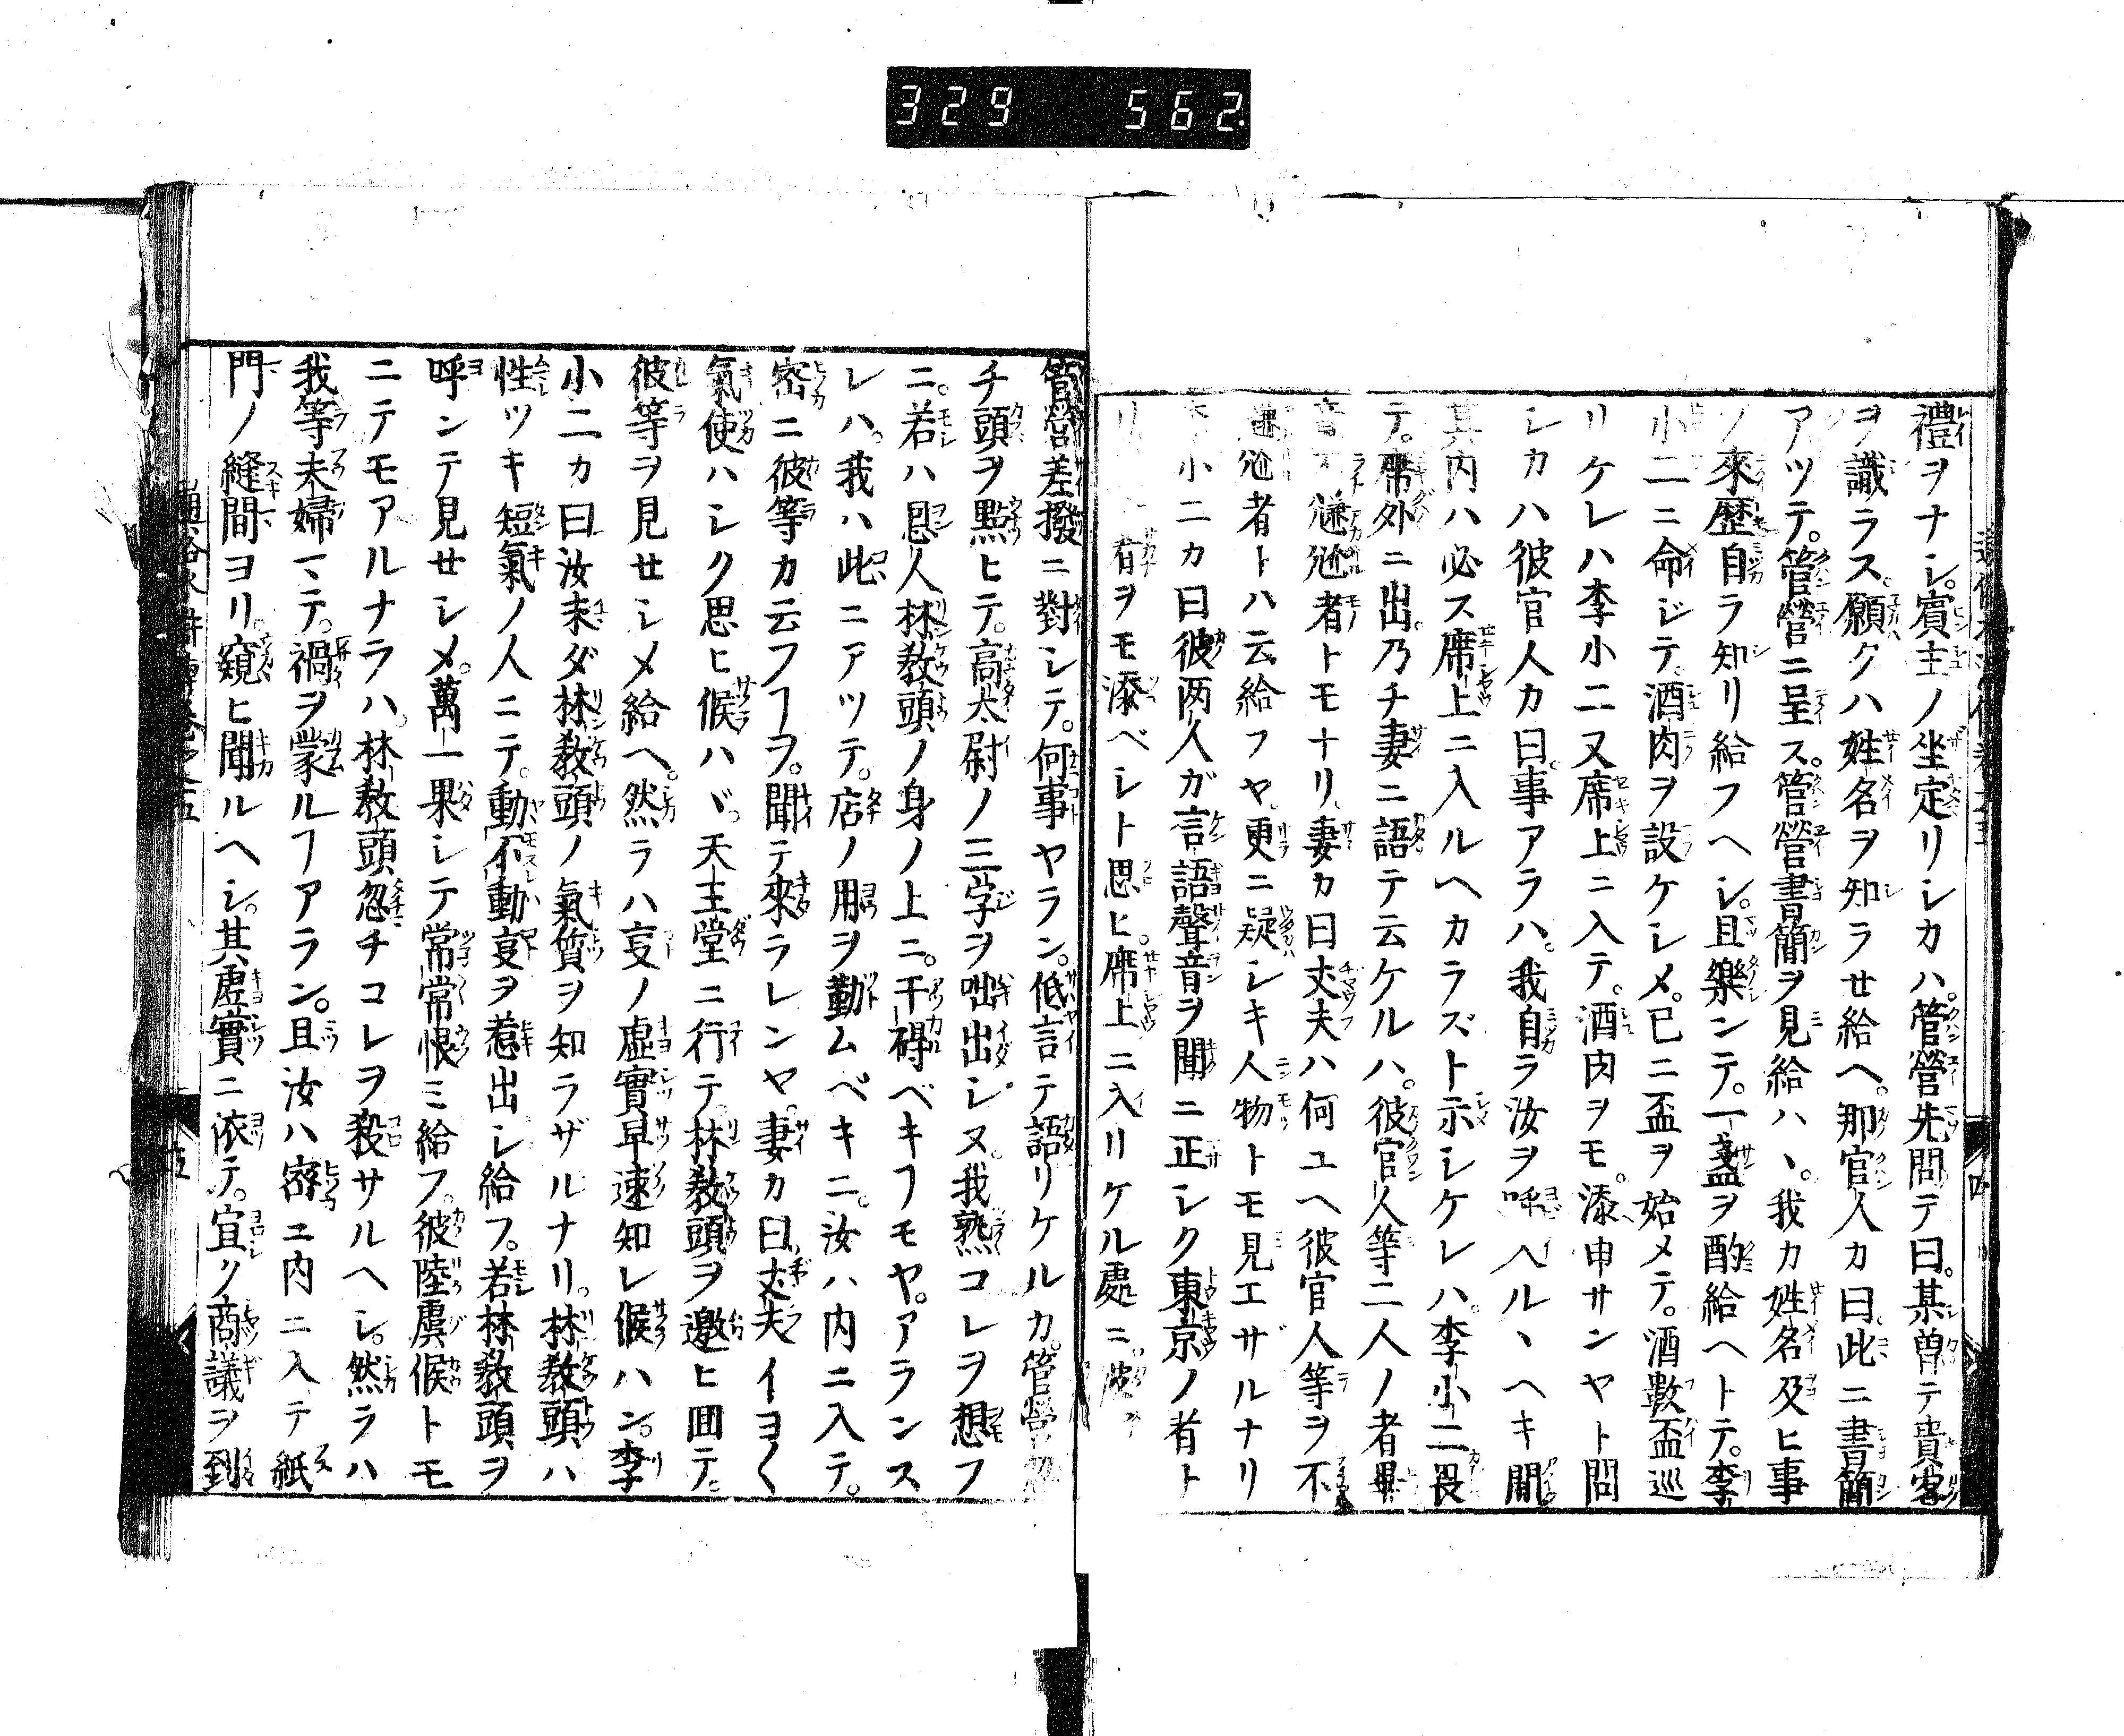 329 562
禮ヲナシ。賓主ノ坐定リシカハ。管營先問テ曰。某曽テ貴客
ヲ識ラス。願クハ姓名ヲ知ラせ給ヘ。那官人カ曰。此ニ書簡
アツテ。管營ニ呈ス。管營書簡ヲ見給ハヽ。我カ姓名及ヒ事
ノ來歴自ラ知リ給フヘシ。且樂ンテ。一盞ヲ酌給ヘトテ。李
小二ニ命ジテ。酒肉ヲ設ケシメ。已ニ盃ヲ始メテ。酒數盃巡
リケレハ李小二又席上ニ入テ。酒肉ヲモ。添申サンヤト問
シカハ彼官人カ曰。事アラハ。我自ラ汝ヲ呼入ルヽヘキ間
其内ハ必ス席上ニ入ルヘカラズト示シケレハ。李小二畏
テ。席外ニ出。乃チ妻ニ語テ云ケルハ。彼官人等二人ノ者畢
竟不尷尬者トモナリ。妻カ曰丈夫ハ何ユヘ彼官人等ヲ不
尷尬者トハ云給フヤ。更ニ疑シキ人物トモ見エザルナリ
李小二カ曰彼两人ガ言語聲音ヲ聞ニ正シク東京ノ者ト
肴ヲモ添ベシト思ヒ。席上ニ入リケル處ニ。彼
管營差撥ニ對シテ。何事ヤラン。低言テ語リケルカ。管營
チ頭ヲ點ヒテ。高太尉ノ三字ヲ咄出シヌ。我熟コレヲ想フ
ニ。若ハ恩人林敎頭ノ身ノ上ニ。干碍ベキヿモヤ。アランス
レハ。我ハ此ニアツテ。店ノ用ヲ勤ムベキニ。汝ハ内ニ入テ。
密ニ彼等カ云フヿヲ。聞テ來ラレンヤ。妻カ曰丈夫イヨ〱
氣使ハシク思ヒ候ハヾ。天王堂ニ行テ。林敎頭ヲ邀ヒ囬テ。
彼等ヲ見せシメ給ヘ。然ラハ㕝ノ虚實早速知レ候ハン。李
小二カ曰汝末ダ林敎頭ノ氣質ヲ知ラザルナリ。林敎頭ハ
性ツキ短氣ノ人ニテ。動不動㕝ヲ惹出シ給フ。若林敎頭ヲ
呼ンテ見せシメ。萬一果シテ常常恨ミ給フ。彼陸虞候トモ
ニテモアルナラハ。林敎頭忽チコレヲ殺サルヘシ。然ラハ
我等夫婦マテ。禍ヲ蒙ルヿアラン。且汝ハ密ニ内ニ入テ紙
門ノ縫間ヨリ。窺ヒ聞ルヘシ。其虚實ニ依テ。宜ク商議ヲ到